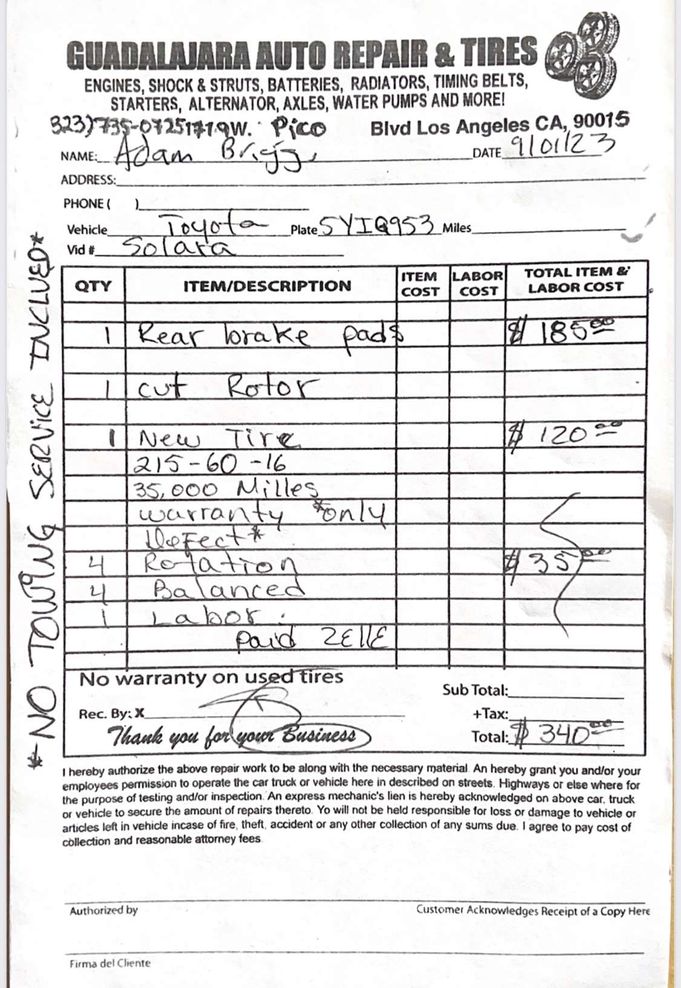 GUADALAJARA AUTO REPAIR & TIRES
ENGINES, SHOCK & STRUTS, BATTERIES, RADIATORS, TIMING BELTS,
STARTERS, ALTERNATOR, AXLES, WATER PUMPS AND MORE!
323)735-0725 1719W. Pico Blvd Los Angeles CA, 90015
NAME: Adam Briggs DATE 9/01/23
ADDRESS:
PHONE ( )
Vehicle Toyota Plate 5YIQ953 Miles
Vid # Solara
*NO TOWING SERVICE INCLUED*
QTY ITEM/DESCRIPTION ITEM COST LABOR COST TOTAL ITEM & LABOR COST
1 Rear brake pads $ 185.00
1 cut Rotor
1 New Tire $ 120.00
215-60-16
35,000 Milles
warranty *only
Defect*
4 Rotation $ 35.00
4 Balanced
1 Labor:
paid ZEllE
No warranty on used tires
Sub Total:
Rec. By: X +Tax:
Thank you for your Business Total: $ 340.00
I hereby authorize the above repair work to be along with the necessary material. An hereby grant you and/or your
employees permission to operate the car truck or vehicle here in described on streets. Highways or else where for
the purpose of testing and/or inspection. An express mechanic's lien is hereby acknowledged on above car, truck
or vehicle to secure the amount of repairs thereto. Yo will not be held responsible for loss or damage to vehicle or
articles left in vehicle incase of fire, theft, accident or any other collection of any sums due. I agree to pay cost of
collection and reasonable attorney fees
Authorized by Customer Acknowledges Receipt of a Copy Here
Firma del Cliente